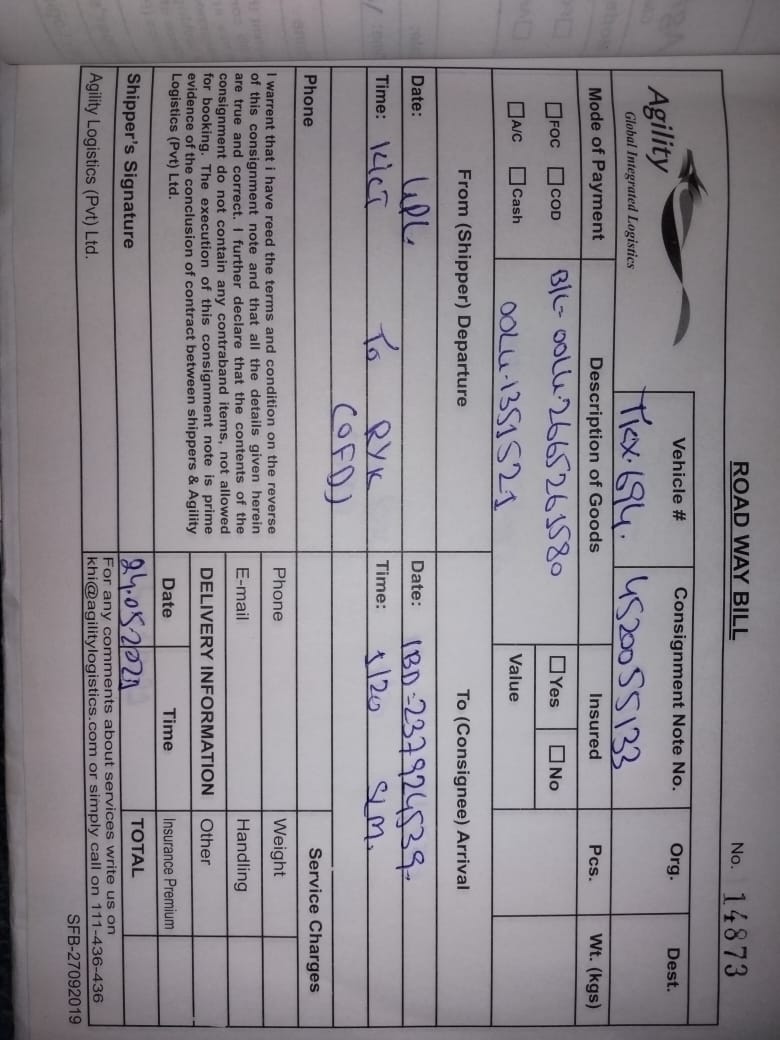 ROAD WAY BILL
No. 14873
Agility
Global Integrated Logistics
Vehicle #
Consignment Note No.
Org.
Dest.
TKX-694.
4520055133
Mode of Payment
Description of Goods
Insured
Pcs.
Wt. (kgs)
FOC
COD
B/L- OOLU-2665261580
Yes
No
A/C
Cash
OOLU-1351521
Value
From (Shipper) Departure
To (Consignee) Arrival
Date: UPL
Date: IBD-237924539
Time: KICT To RYK
Time: 1/20 SLM.
(OFD)
Phone
Service Charges
I warrent that i have reed the terms and condition on the reverse
of this consignment note and that all the details given herein
are true and correct. I further declare that the contents of the
consignment do not contain any contraband items, not allowed
for booking. The execution of this consignment note is prime
evidence of the conclusion of contract between shippers & Agility
Logistics (Pvt) Ltd.
Phone
Weight
E-mail
Handling
DELIVERY INFORMATION
Other
Date
Time
Insurance Premium
Shipper's Signature
24.05.2021
TOTAL
Agility Logistics (Pvt) Ltd.
For any comments about services write us on
khi@agilitylogistics.com or simply call on 111-436-436
SFB-27092019